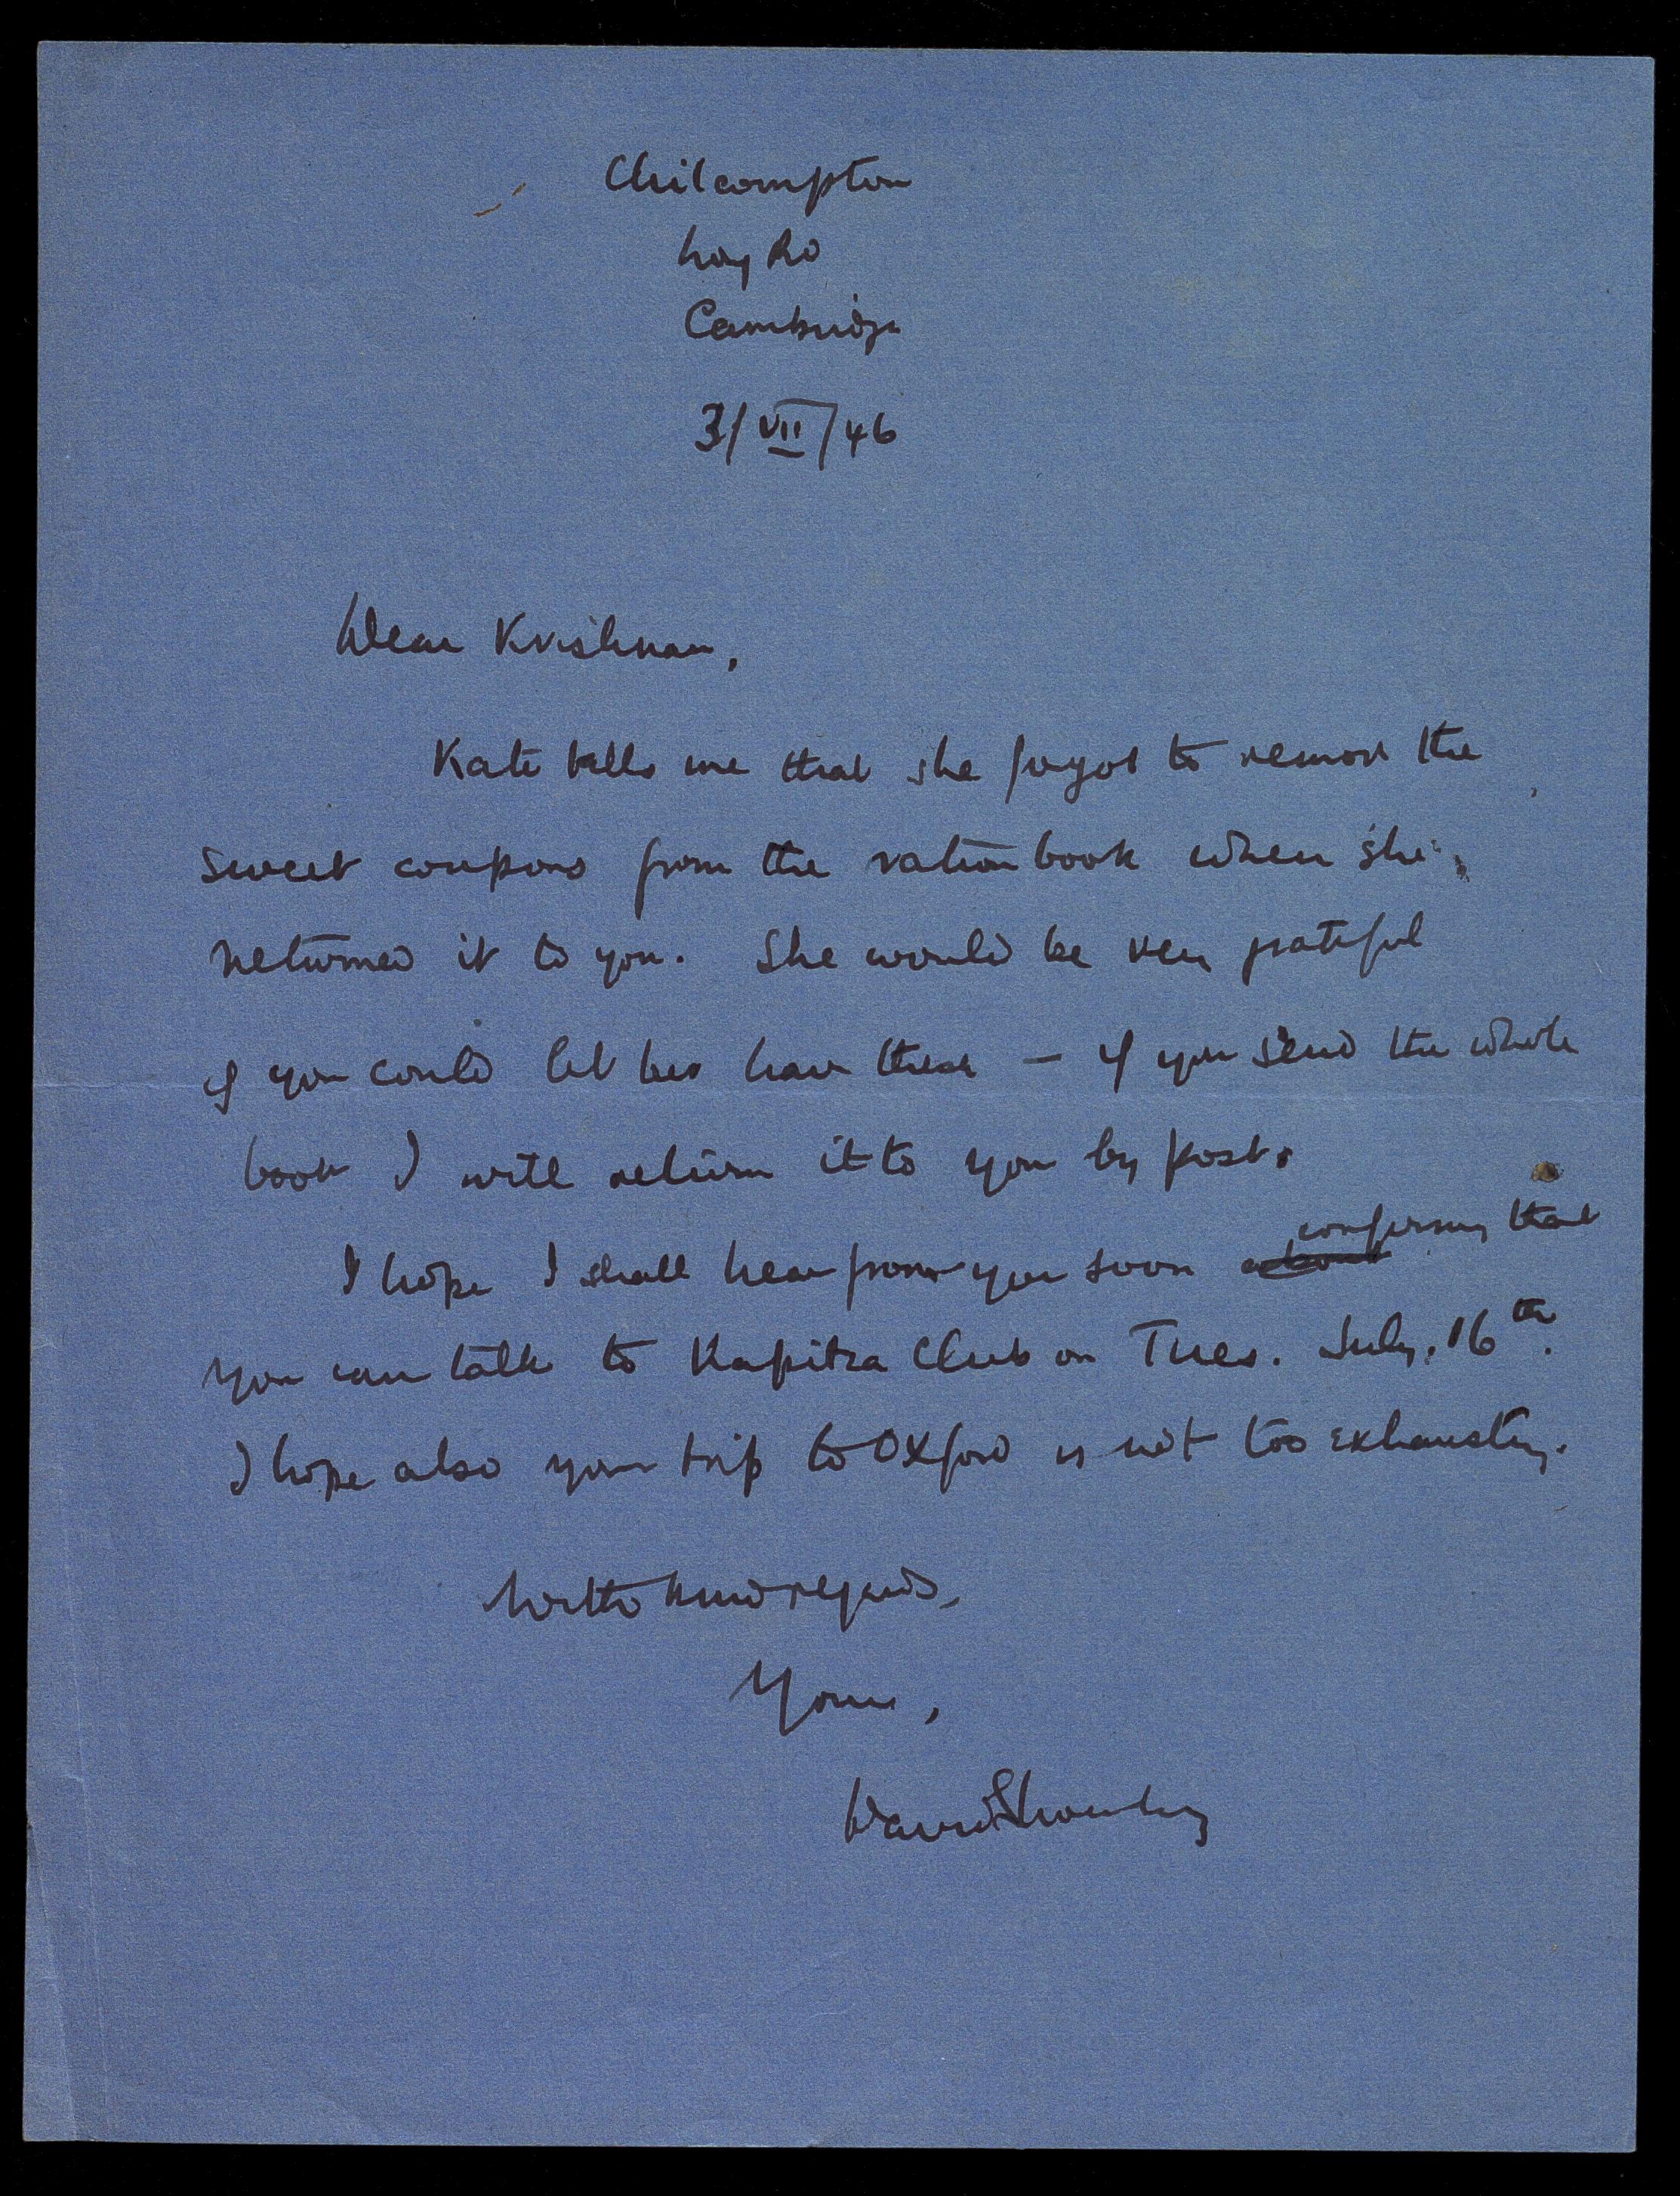 Chilcompton
Long Rd
Cambridge
3/VII/46
Dear Krishnan,
Kate tells me that she forgot to remove the
sweet coupons from the ration book when she
returned it to you. She would be very grateful
if you could let her have these – if you send the whole
book I will return it to you by post.
I hope I shall hear from you soon about confirming that
you can talk to Kapitza Club on Tues. July. 16th.
I hope also your trip to Oxford is not too exhausting.
With kind regards,
Yours,
David Shoenberg